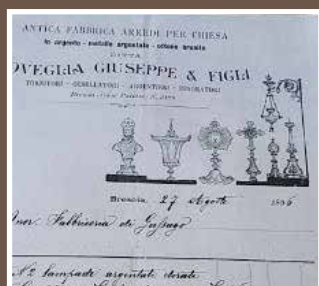 ANTICA FABBRICA ARREDI PER CHIESA
In argento - metallo argentato - ottone bronzo
DITTA
OVEGLIA GIUSEPPE & FIGLI
TORNITORI - CESELLATORI - ARGENTIERI - DORATORI
Brescia
Brescia, 27 Agosto 1896
Fabbriceria di Gussago
N. 2 lampade argentate dorate